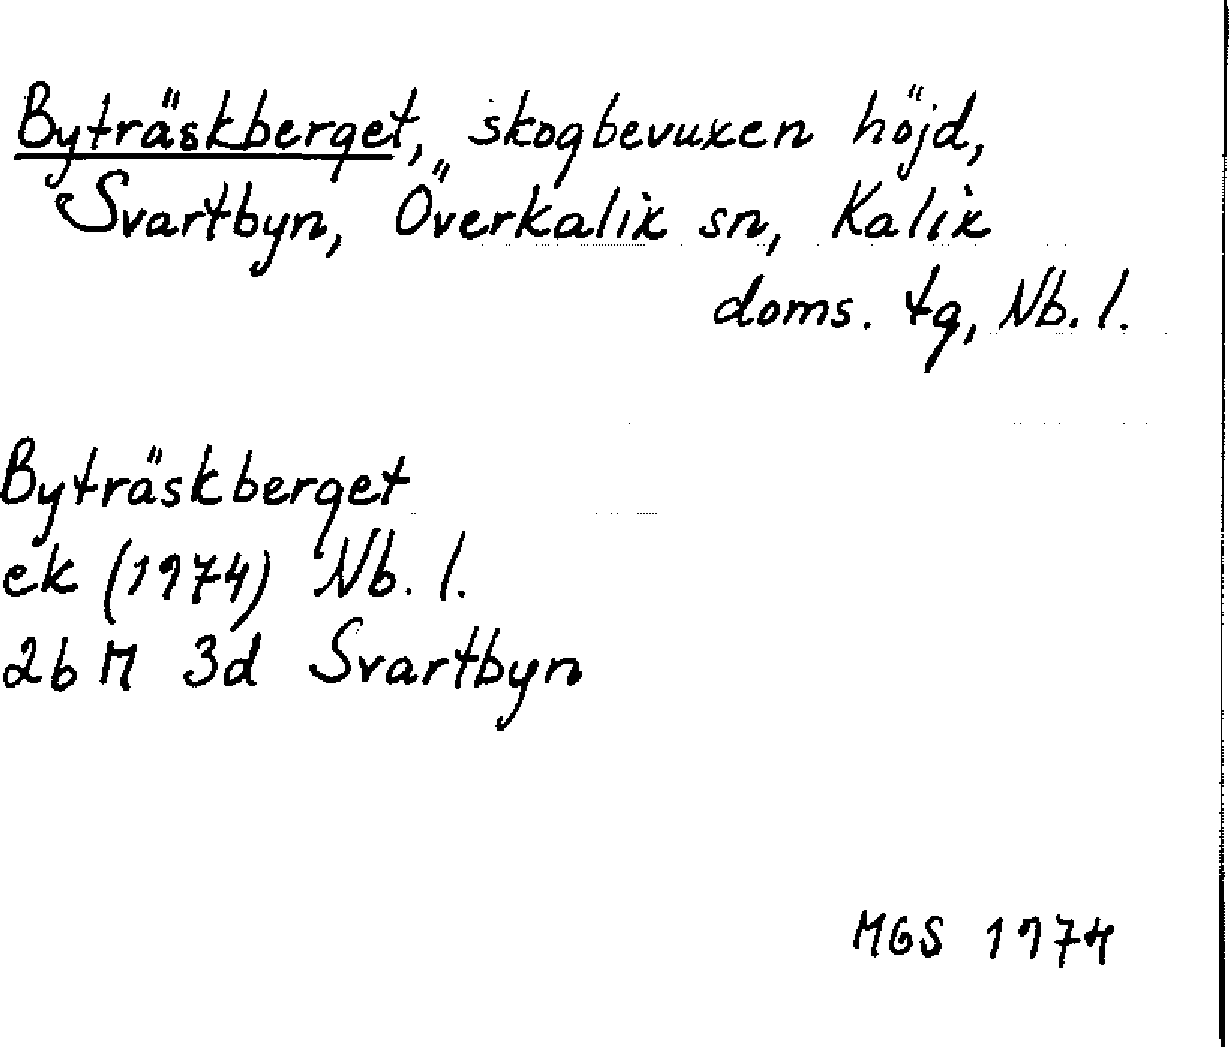 Byträskberget, skogbevuxen höjd,
Svartbyn, Överkalix sn, Kalix
doms. tg, Nb. l.
Byträskberget
ek (1974) Nb. l.
26 M 3d Svartbyn
MGS 1974